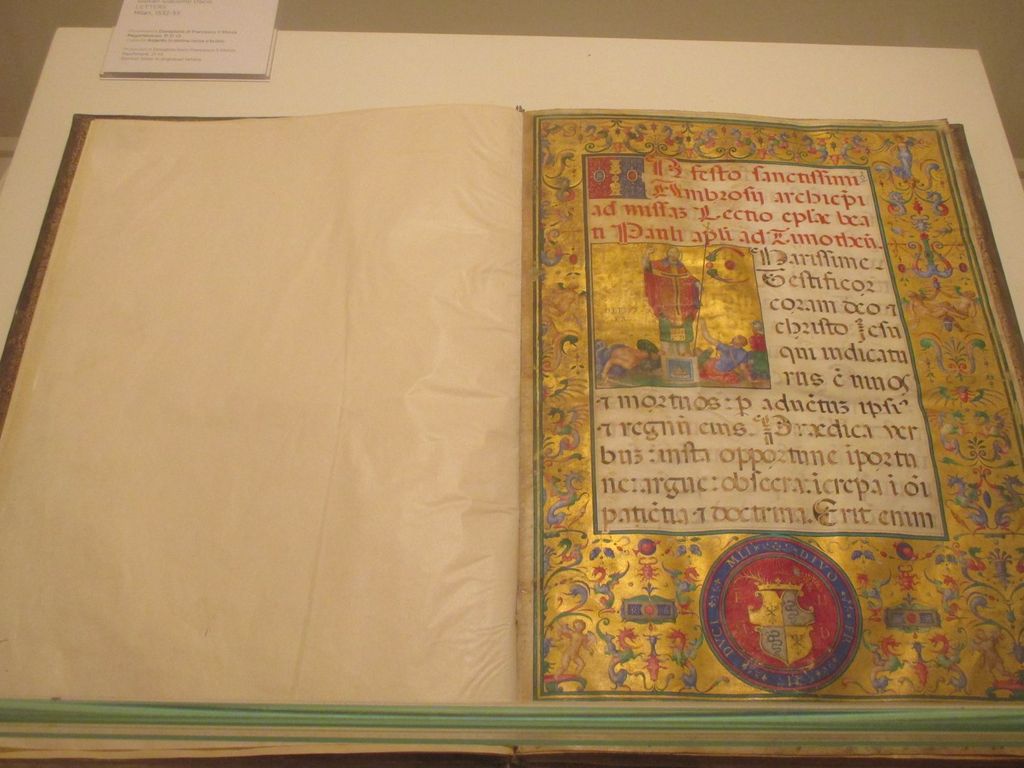 Milan, 1532-33
In festo sanctissimi
Ambrosij archiepi
ad missaz Lectio eplæ bea
ti Pauli apli ad Timotheũ.
Charissime.
Testificor
coram deo ⁊
christo Iesu
qui iudicatu
rus ẽ viuos
⁊ mortuos: p aduẽtuz ipsiꝰ
⁊ regnũ eius. Prædica ver
buz: insta opportune iportu
ne: argue: obsecra: icrepa i oi
patiẽtia ⁊ doctrina. Erit enim
DIVO FR II DVCI MLI